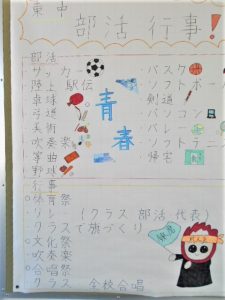 東中
部活 行事!
部活
サッカー
・バスケ
陸上 駅伝
・ソフトボー
卓球
・剣道
弓道
美術
・バレー
吹奏楽
・ソフトテニ
箏曲
・帰宅
野球
青春
行事
体育祭
リレー(クラス 部活 代表)
クラスで旗づくり
文化祭
吹奏楽
合唱祭
クラス 全校合唱